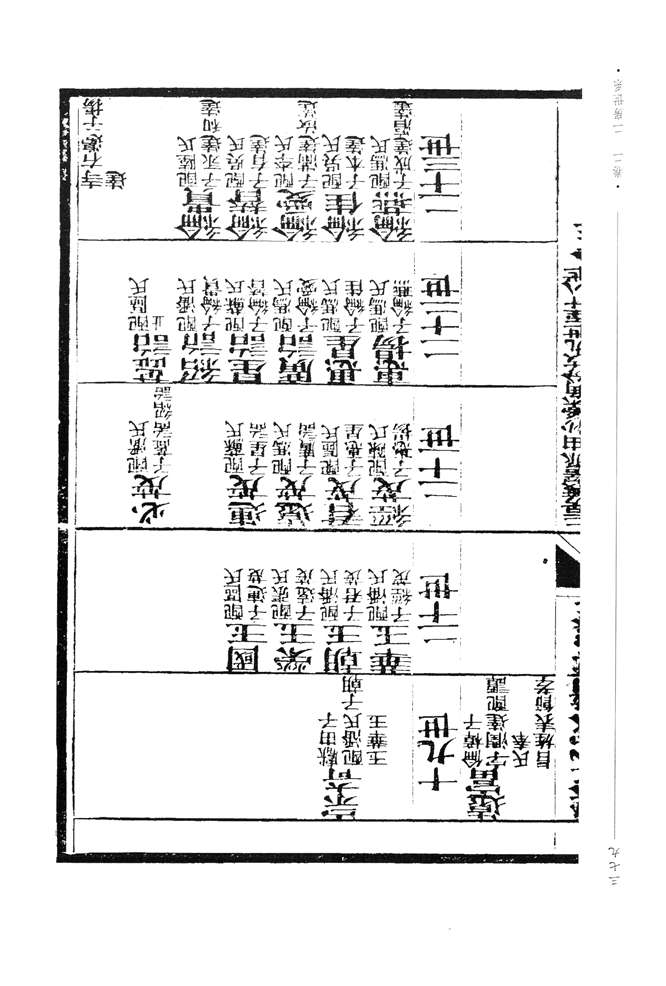 三七九
寺右邊子揚
達
宗奇
獻由子
配潘氏子朝
玉華玉
十九世
遠富
倫樟子
字潤達配譚
氏奉
旨旌表節孝
國玉
配區氏
子連茂
榮玉
配張氏
子遠茂
朝玉
配潘氏
子君茂
華玉
配潘氏
子經茂
二十世
必茂
配潘氏
子詒紹詒
連茂
配蘇氏
子星詒
遠茂
配馮氏
子廣詒
君茂
配區氏
子惠星
經茂
配陳氏
子惠揚
二十一世
詒
配區氏
止
紹詒
配潘氏
子綸貴
星詒
配蘇氏
子綸替
廣詒
配馮氏
子綸愛
惠星
配馮氏
子綸佳
惠揚
配馮氏
子綸燕
二十二世
綸貴
配陸氏
子永達和達
綸替
配吳氏
子有達
綸愛
配李氏
子滿達汝達
綸佳
配吳氏
子本達
綸燕
配馮氏
子成達滔達
二十三世
卷二 二房世系